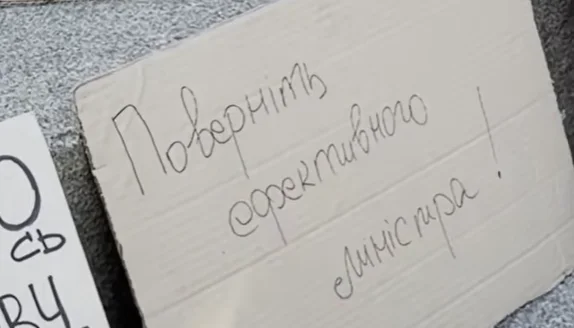 Поверніть
ефективного
міністра!
О
сь
ВЧ